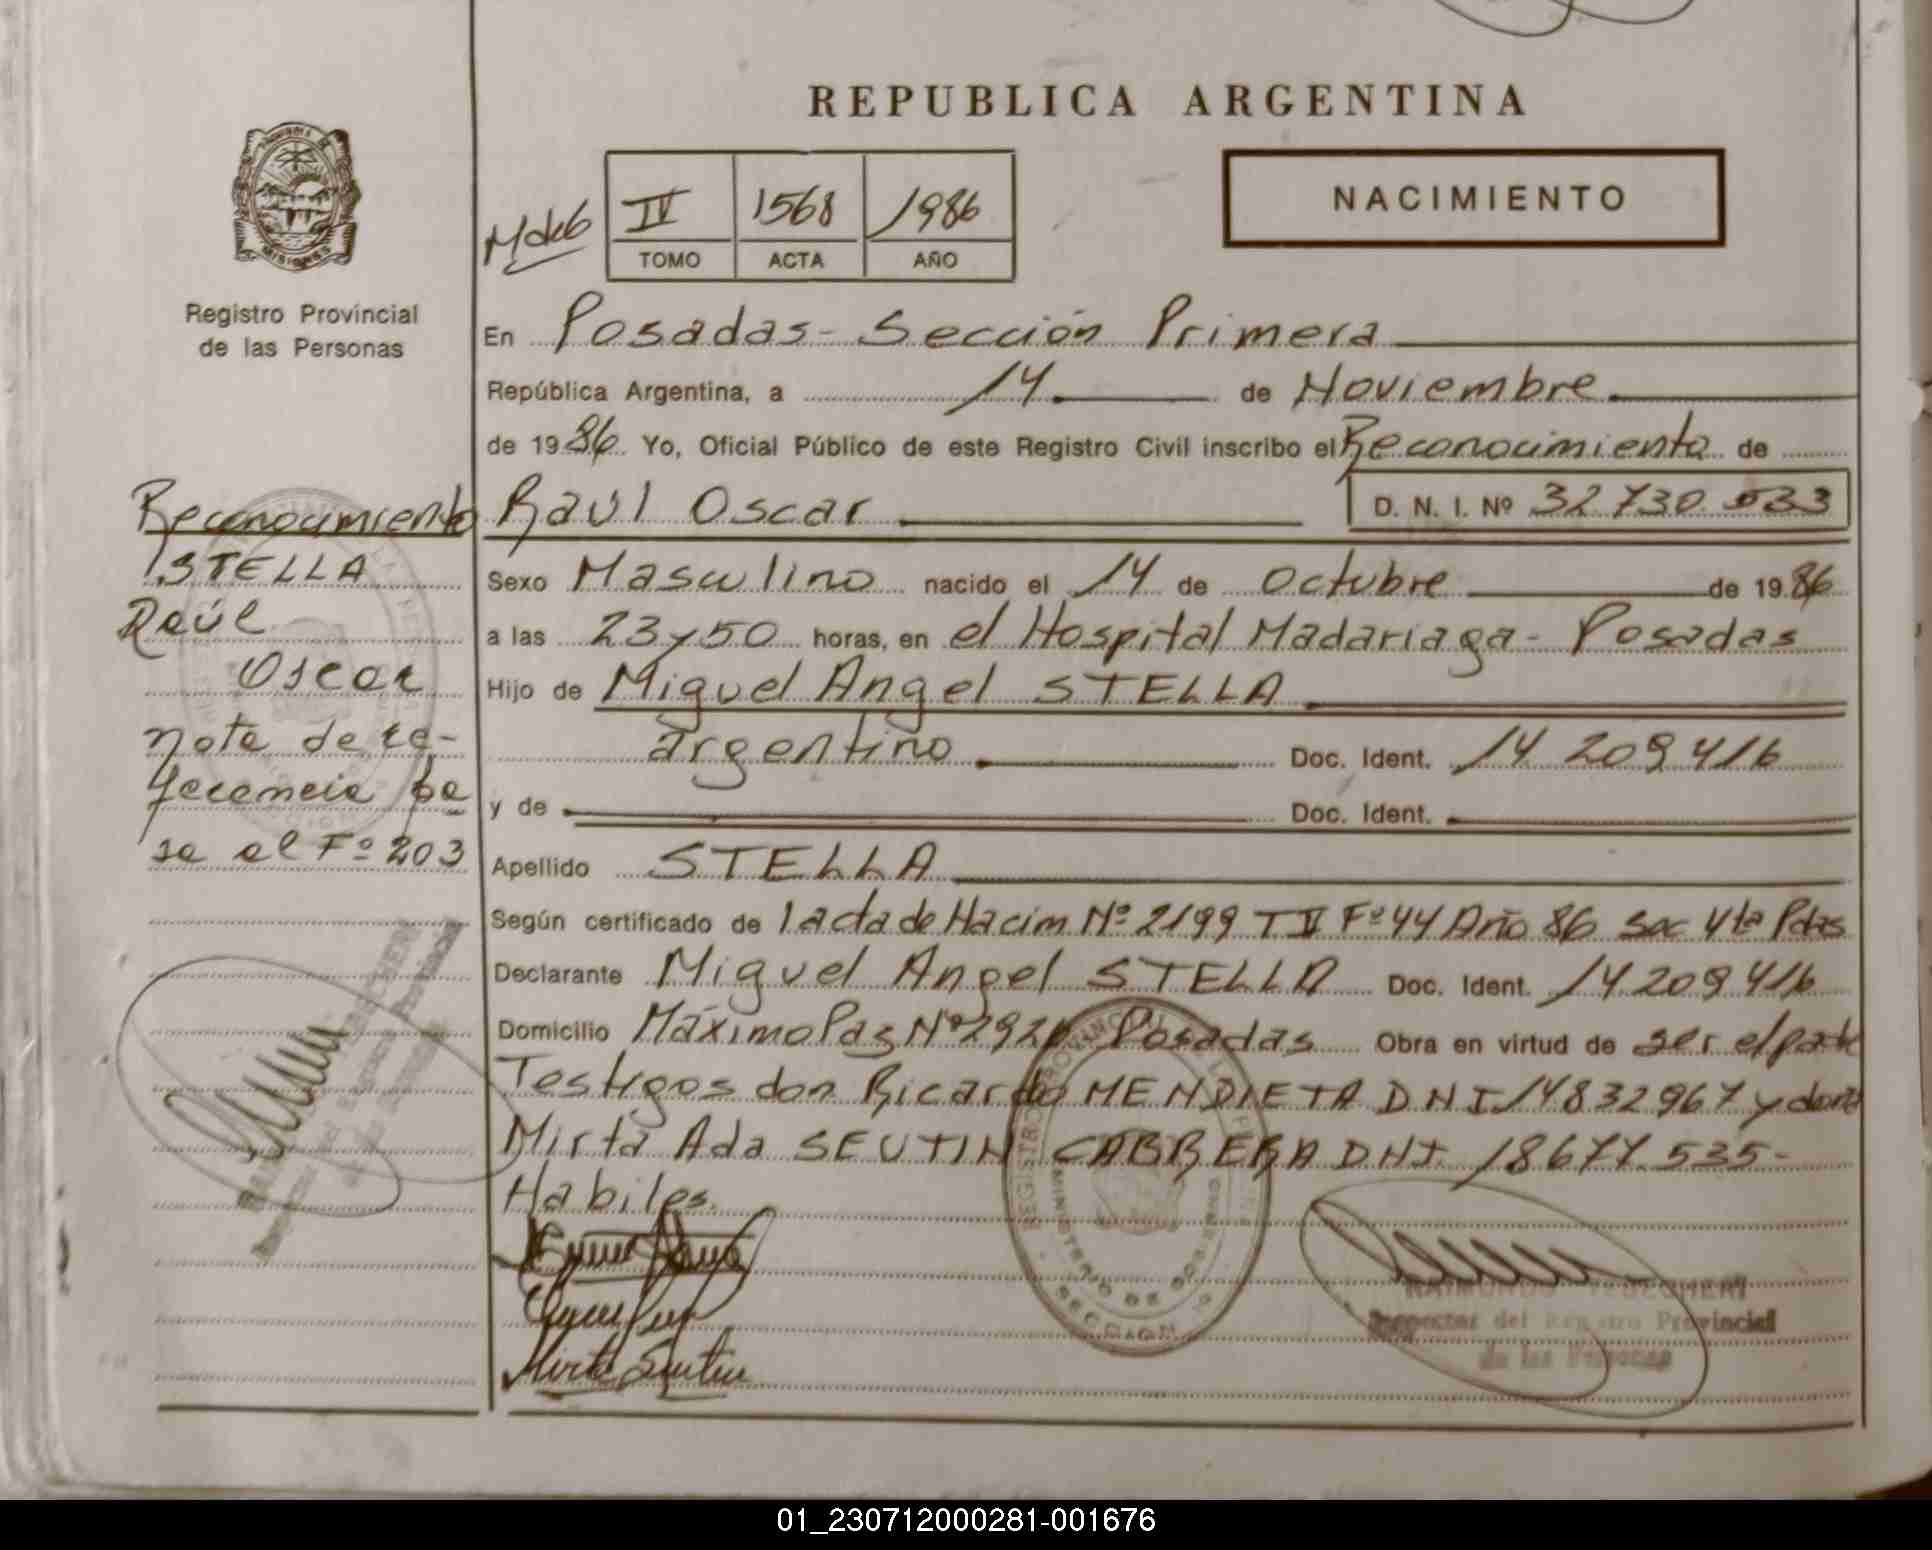 REPUBLICA ARGENTINA
NACIMIENTO
IV 1568 1986
TOMO ACTA AÑO
MISIONES
Registro Provincial
de las Personas
En Posadas - Sección Primera
República Argentina, a 14 de Noviembre
de 1986 Yo, Oficial Público de este Registro Civil inscribo el Reconocimiento de
Raúl Oscar D. N. I. Nº 32.730.533
Sexo Masculino nacido el 14 de Octubre de 1986
a las 23 y 50 horas, en el Hospital Madariaga - Posadas
Hijo de Miguel Angel STELLA
argentino Doc. Ident. 14 209 416
y de Doc. Ident.
Apellido STELLA
Según certificado de 1 acta de Nacim Nº 2199 T II Fº 44 Año 86 Sec 4ta Pdas
Declarante Miguel Angel STELLA Doc. Ident. 14.209 416
Domicilio Máximo Paz Nº 2926 Posadas Obra en virtud de ser el padre
Testigos don Ricardo MENDIETA DNI 14832967 y doña
Mirta Ada SEUTIN CABRERA DNI 18677.535-
Habiles.
Mirta Seutin
Inspector del Registro Provincial
de las Personas
Reconocimiento
STELLA
Raúl
Oscar
nota de re-
ferencia pa
se al Fº 203
01_230712000281-001676